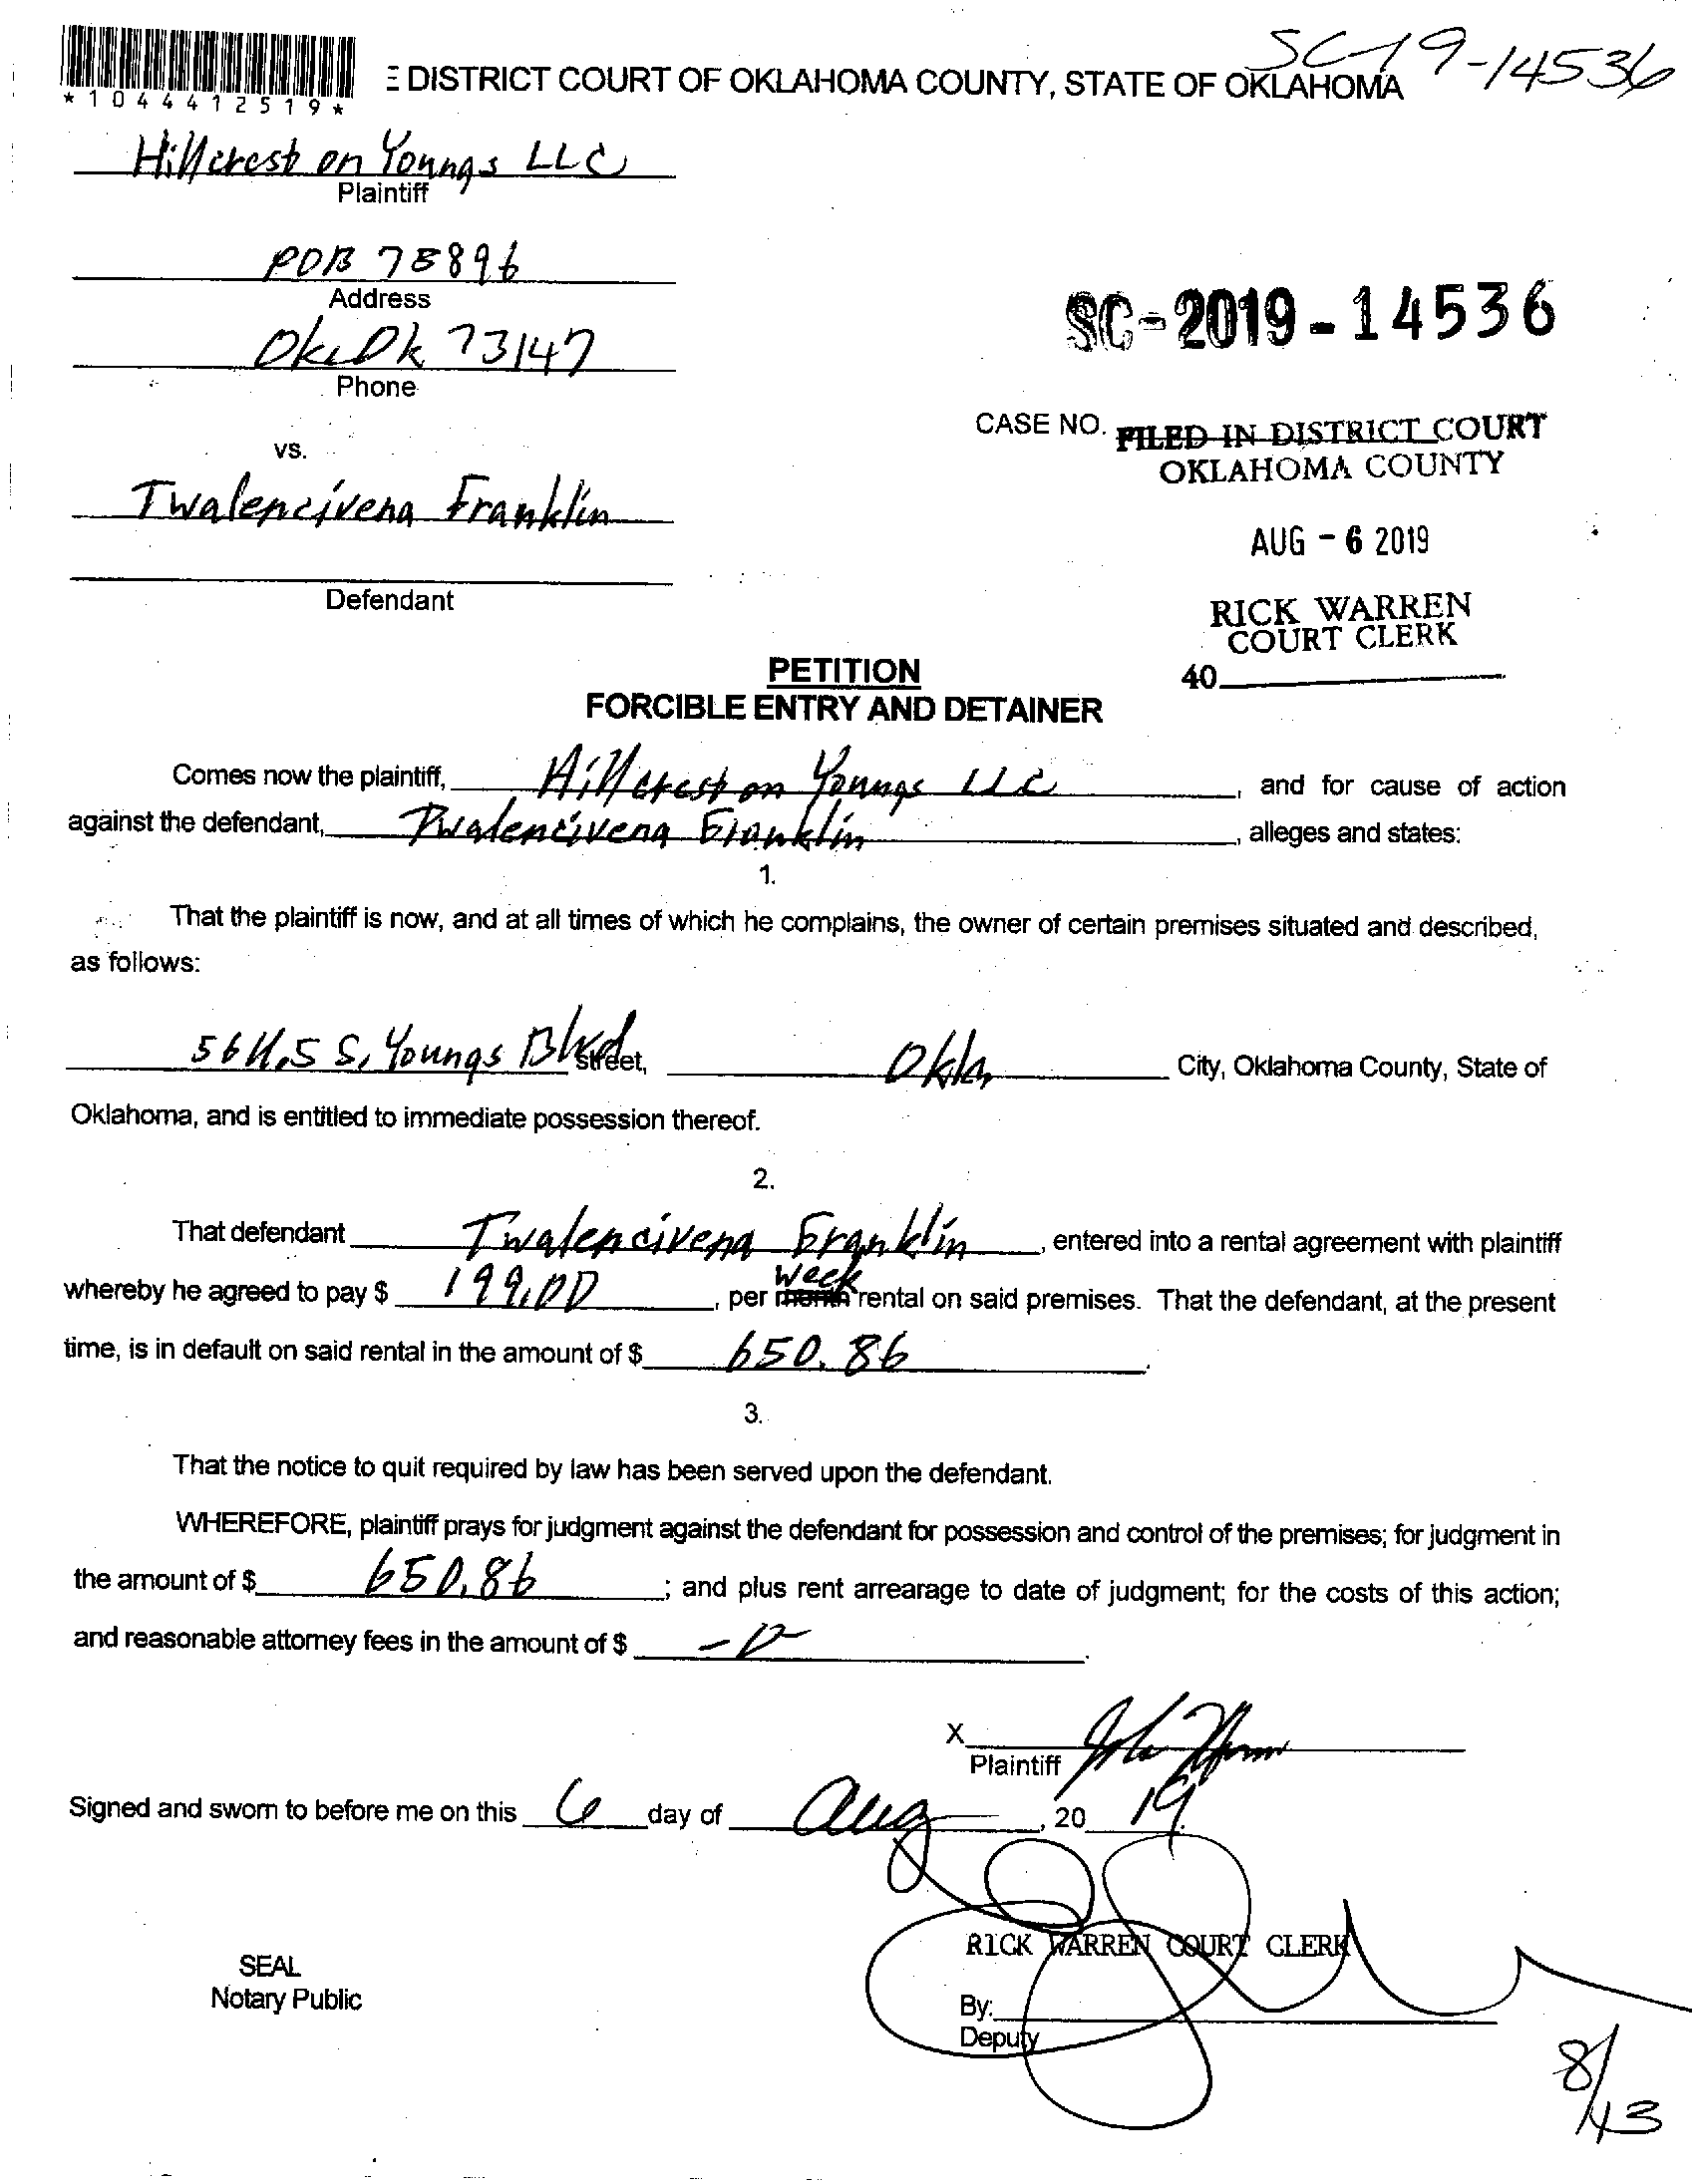 SC-19-14536
*1044412519*
E DISTRICT COURT OF OKLAHOMA COUNTY, STATE OF OKLAHOMA
Hillcrest on Youngs LLC
Plaintiff
POB 75896
Address
Okc Ok 73147
Phone
SC-2019-14536
CASE NO. FILED IN DISTRICT COURT
OKLAHOMA COUNTY
vs.
Twalencivena Franklin
AUG - 6 2019
Defendant
RICK WARREN
COURT CLERK
40
PETITION
FORCIBLE ENTRY AND DETAINER
Comes now the plaintiff, Hillcrest on Youngs LLC, and for cause of action
against the defendant, Twalencivena Franklin, alleges and states:
1.
That the plaintiff is now, and at all times of which he complains, the owner of certain premises situated and described,
as follows:
S. Youngs Blvd street, Okla City, Oklahoma County, State of
Oklahoma, and is entitled to immediate possession thereof.
2.
That defendant Twalencivena Franklin, entered into a rental agreement with plaintiff
whereby he agreed to pay $ 199.00, per month week rental on said premises. That the defendant, at the present
time, is in default on said rental in the amount of $ 650.86.
3.
That the notice to quit required by law has been served upon the defendant.
WHEREFORE, plaintiff prays for judgment against the defendant for possession and control of the premises; for judgment in
the amount of $ 650.86; and plus rent arrearage to date of judgment; for the costs of this action;
and reasonable attorney fees in the amount of $ -0-.
X
Plaintiff
Signed and sworn to before me on this 6 day of Aug, 20 19.
RICK WARREN COURT CLERK
SEAL
Notary Public
By:
Deputy
8/13